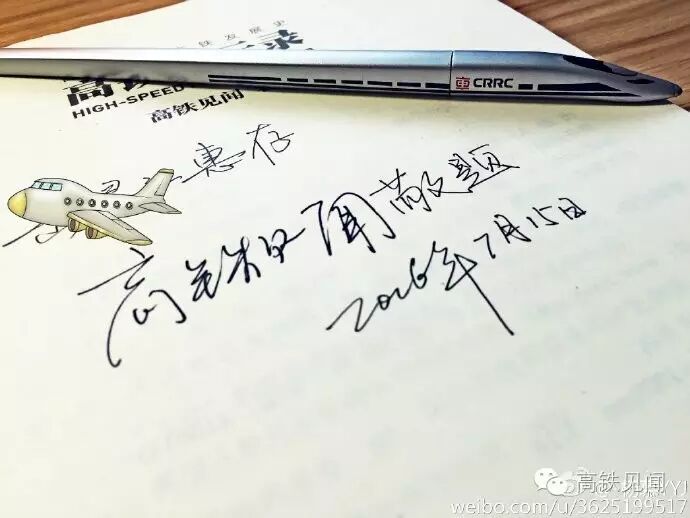 铁发展史
录
HIGH-SPEED
高铁见闻
CRRC
惠存
高铁见闻敬题
2016年7月15日
高铁见闻
weibo.com/u/3625199517